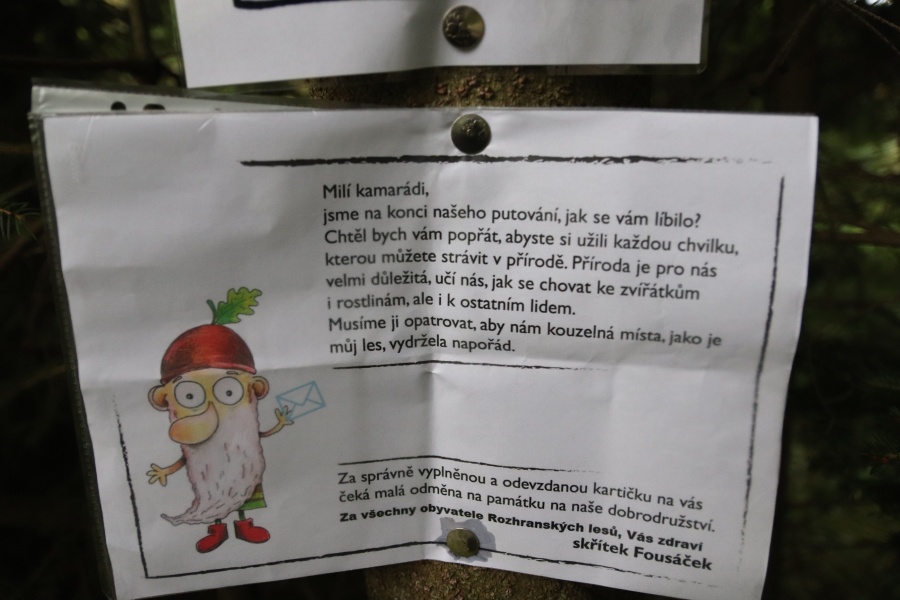 Milí kamarádi,
jsme na konci našeho putování, jak se vám líbilo?
Chtěl bych vám popřát, abyste si užili každou chvilku,
kterou můžete strávit v přírodě. Příroda je pro nás
velmi důležitá, učí nás, jak se chovat ke zvířátkům
i rostlinám, ale i k ostatním lidem.
Musíme ji opatrovat, aby nám kouzelná místa, jako je
můj les, vydržela napořád.
Za správně vyplněnou a odevzdanou kartičku na vás
čeká malá odměna na památku na naše dobrodružství.
Za všechny obyvatele Rozhranských lesů, Vás zdraví
skřítek Fousáček